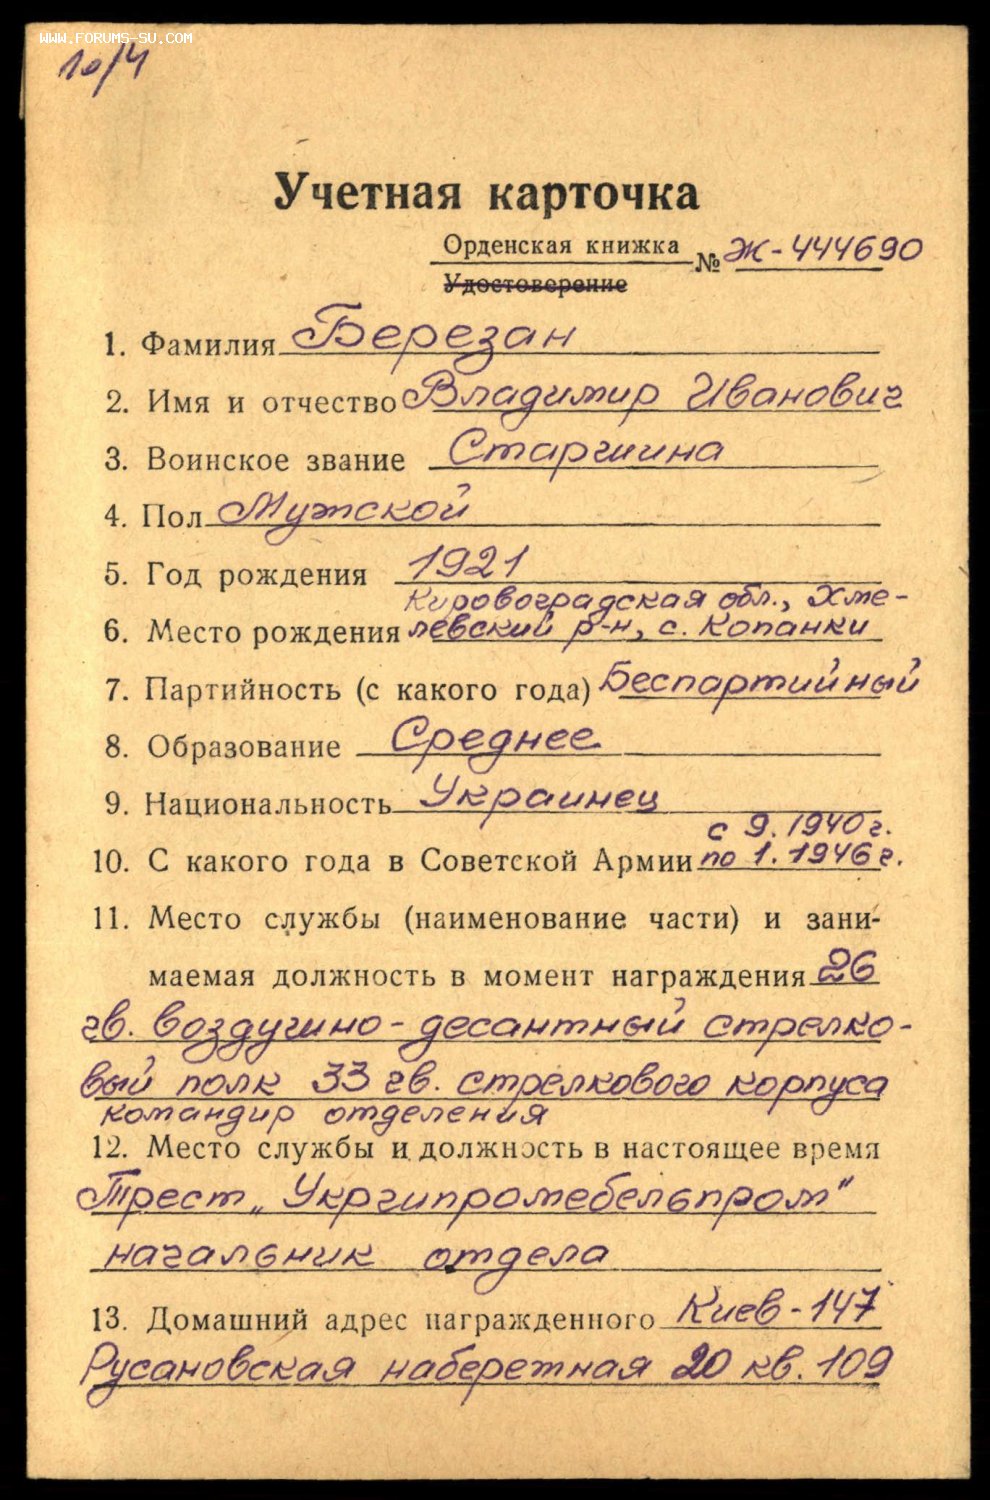 WWW.FORUMS-SU.COM
10/4
Учетная карточка
Орденская книжка № Ж-444690
Удостоверение
1. Фамилия Березан
2. Имя и отчество Владимир Иванович
3. Воинское звание Старшина
4. Пол Мужской
5. Год рождения 1921
Кировоградская обл., Хме-
6. Место рождения левский р-н, с. Копанки
7. Партийность (с какого года) Беспартийный
8. Образование Среднее
9. Национальность Украинец
с 9.1940 г.
10. С какого года в Советской Армии по 1.1946 г.
11. Место службы (наименование части) и зани-
маемая должность в момент награждения 26
гв. воздушно-десантный стрелко-
вый полк 33 гв. стрелкового корпуса
командир отделения
12. Место службы и должность в настоящее время
Трест „Укргипромебельпром"
начальник отдела
13. Домашний адрес награжденного Киев-147
Русановская набережная 20 кв. 109